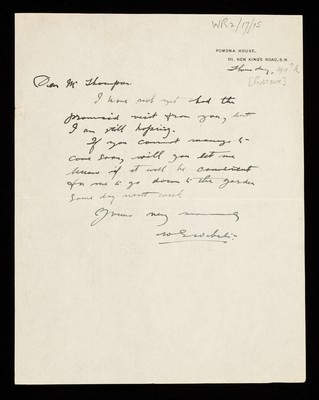 WR2/17/15
POMONA HOUSE,
111, NEW KING'S ROAD, S.W.
Thursday,
Dear Mr Thompson
I have not yet had the
promised visit from you, but
I am still hoping.
If you cannot manage to
come soon, will you let me
know if it will be convenient
for me to go down to the garden
some day next week
Yours very